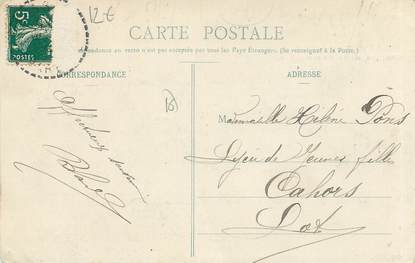 12-6
5c
POSTES
CARTE POSTALE
La Correspondance au recto n'est pas acceptée par tous les Pays Etrangers. (Se renseigner à la Poste.)
CORRESPONDANCE
ADRESSE
Mademoiselle Hélène Pons
Lycée de Jeunes filles
Cahors
Lot